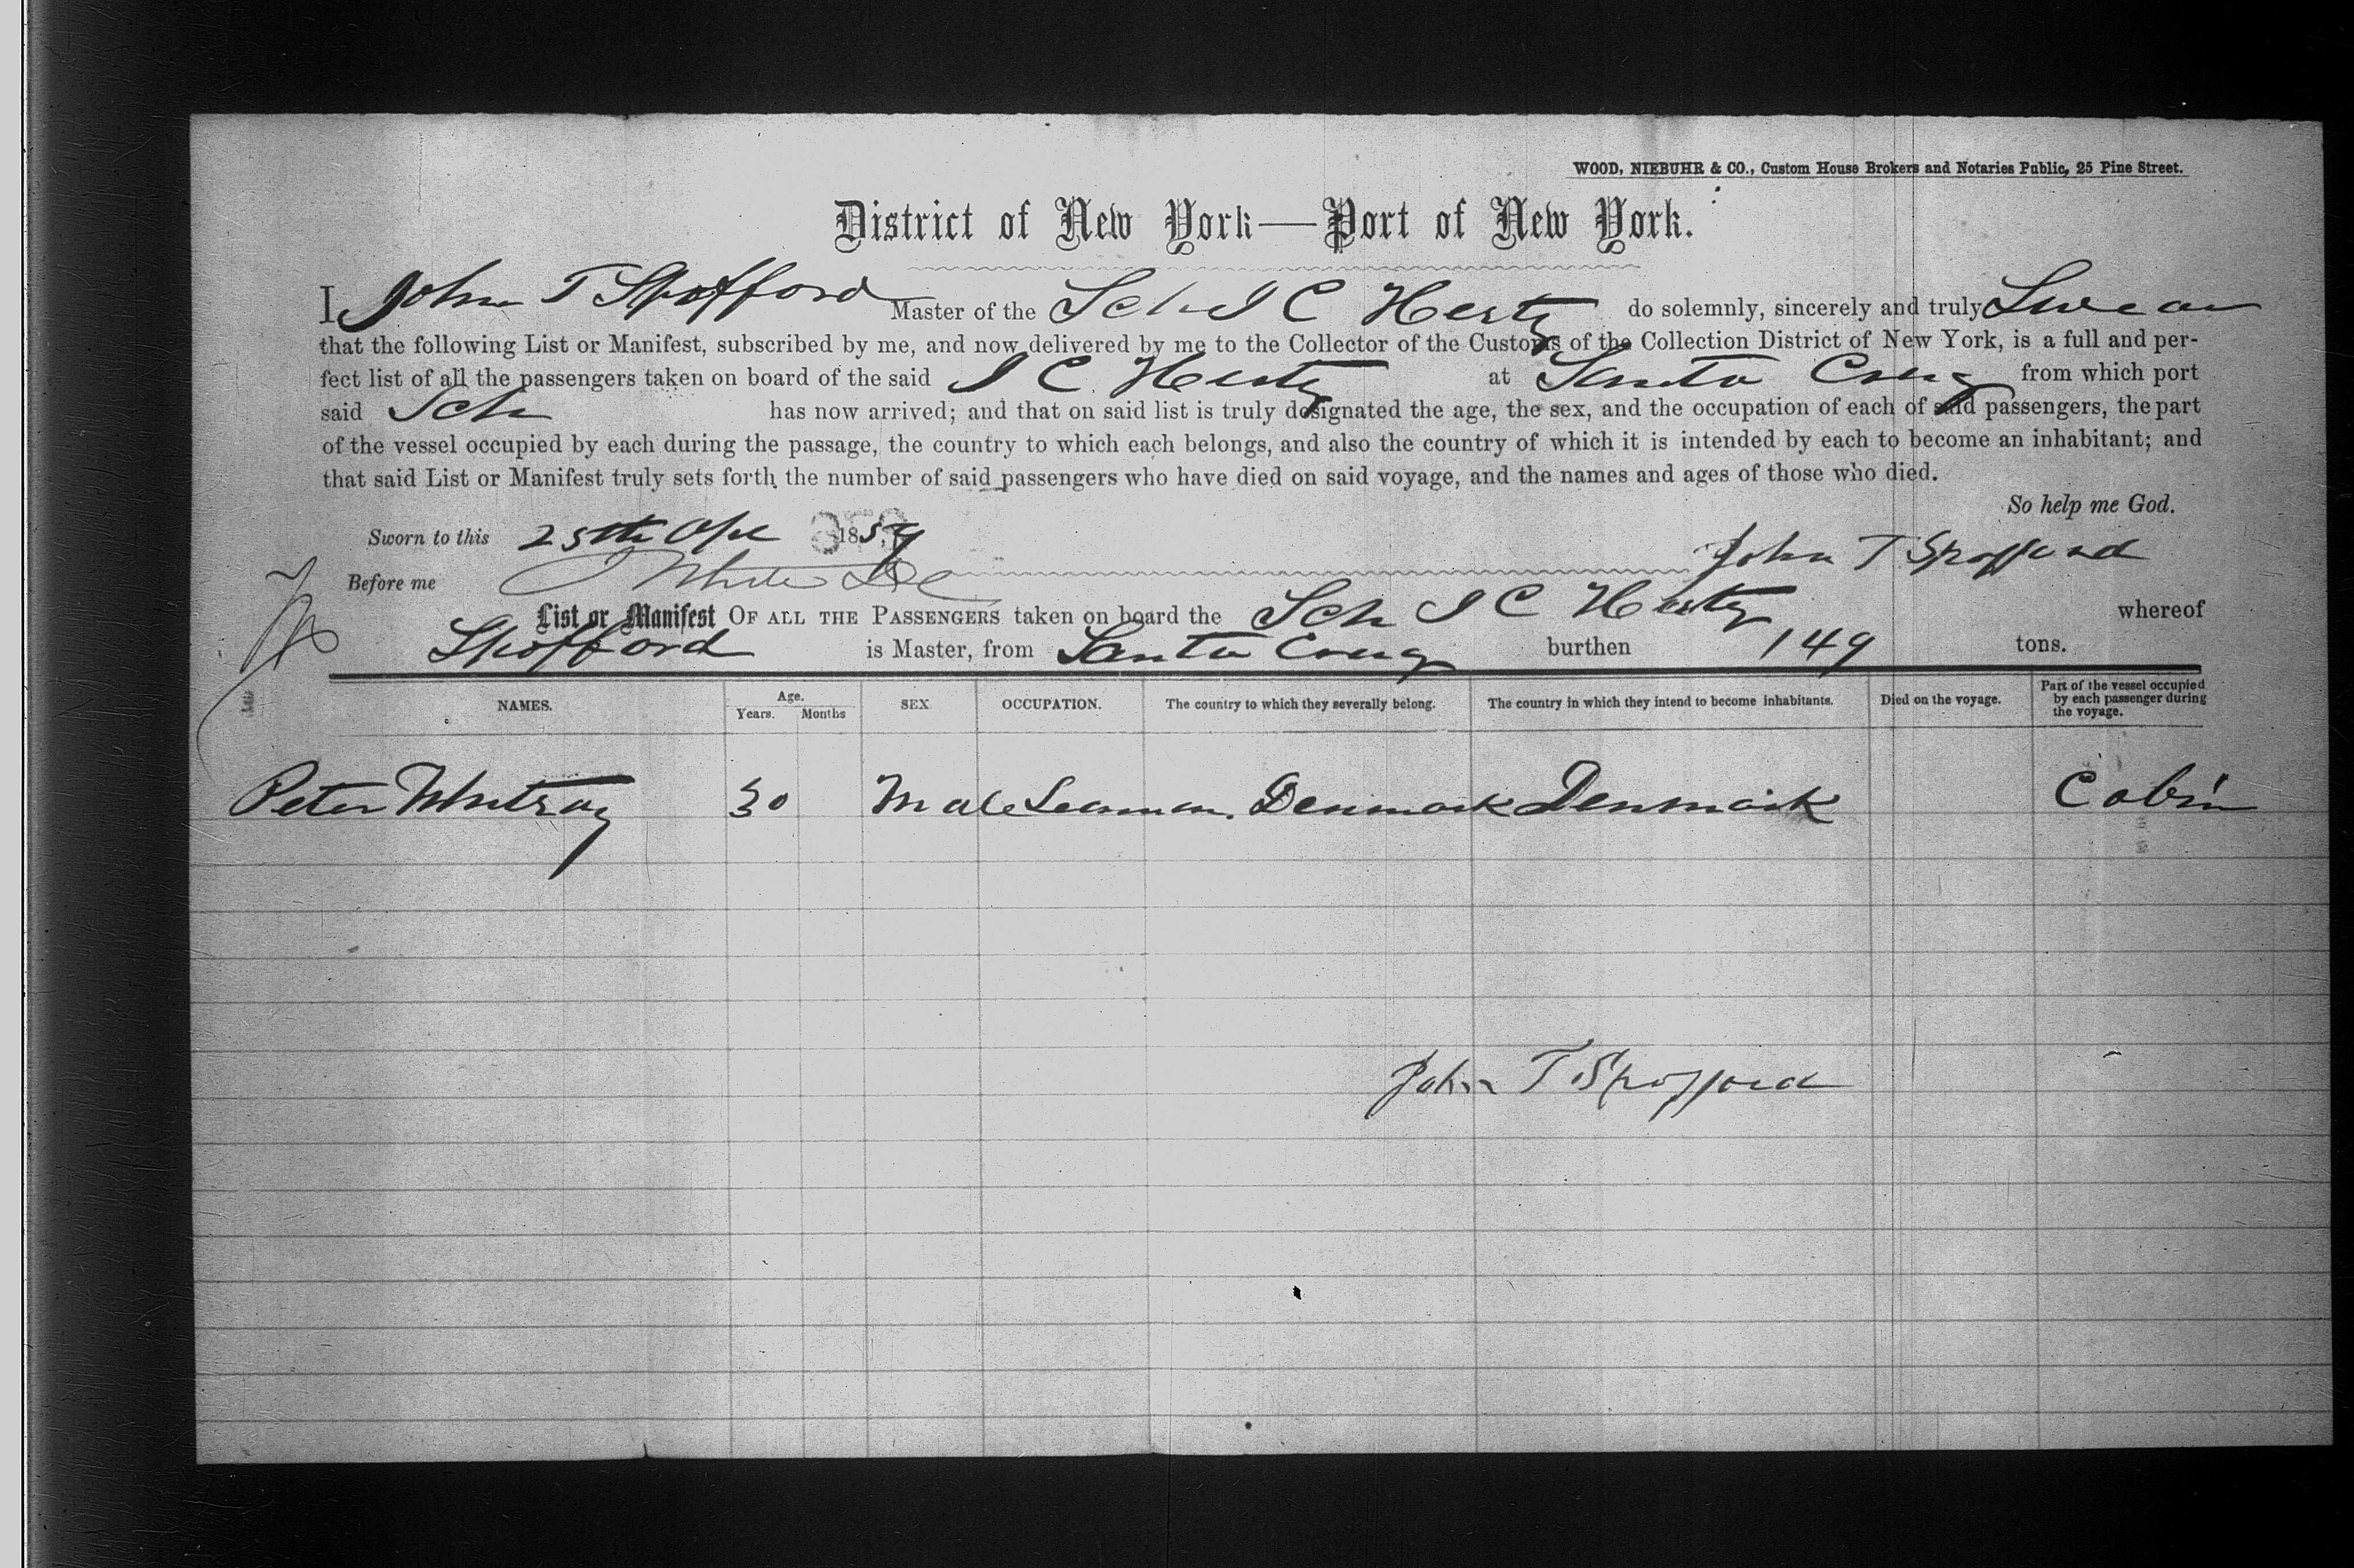 WOOD, NIEBUHR & CO., Custom House Brokers and Notaries Public, 25 Pine Street.
District of New York—Port of New York.
I, John T Spofford Master of the Sch I C Hertz do solemnly, sincerely and truly Swear
that the following List or Manifest, subscribed by me, and now delivered by me to the Collector of the Customs of the Collection District of New York, is a full and per-
fect list of all the passengers taken on board of the said I C Hertz at Santa Cruz from which port
said Sch has now arrived; and that on said list is truly designated the age, the sex, and the occupation of each of said passengers, the part
of the vessel occupied by each during the passage, the country to which each belongs, and also the country of which it is intended by each to become an inhabitant; and
that said List or Manifest truly sets forth the number of said passengers who have died on said voyage, and the names and ages of those who died.
So help me God.
Sworn to this 25th Ape 1859 John T Spofford
Before me
List or Manifest OF ALL THE PASSENGERS taken on board the Sch I C Hertz whereof
Spofford is Master, from Santa Cruz burthen 149 tons.
NAMES. Age. Years. Months SEX. OCCUPATION. The country to which they severally belong. The country in which they intend to become inhabitants. Died on the voyage. Part of the vessel occupied by each passenger during the voyage.
Peter 30 Male Seaman. Denmark Denmark Cabin
John T Spofford